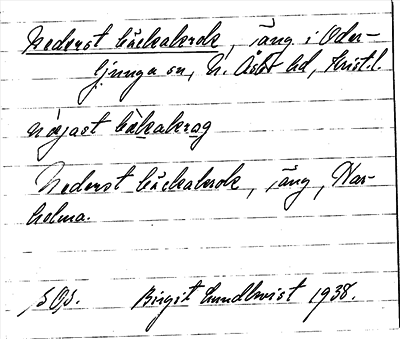 Nederst bäckakrok, äng i Öder-
ljunga sn, N. Åsbo hd, Krist. l.
bäkakrag
Nederst bäckakrok, äng, Var-
holma.
Birgit Lundkvist 1938.